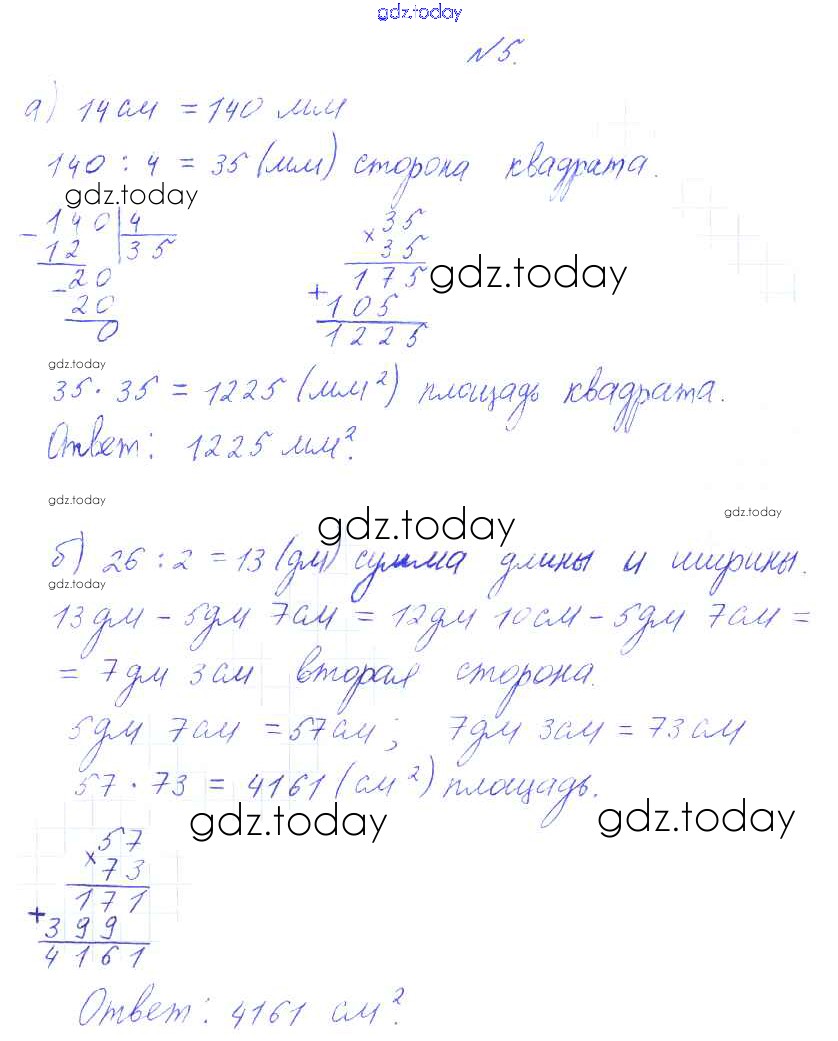 gdz.today
№5.
а) 14см = 140 мм
140 : 4 = 35 (мм) сторона квадрата.
gdz.today
- 140 | 4
12 | 35
- 20
20
0
× 35
35
175
+ 105
1225
gdz.today
gdz.today
35 · 35 = 1225 (мм²) площадь квадрата.
Ответ: 1225 мм².
gdz.today
gdz.today
gdz.today
б) 26 : 2 = 13 (дм) сумма длины и ширины.
gdz.today
13дм - 5дм 7см = 12дм 10см - 5дм 7см =
= 7дм 3см вторая сторона.
5дм 7см = 57см; 7дм 3см = 73см
57 · 73 = 4161 (см²) площадь.
gdz.today
gdz.today
× 57
73
171
+ 399
4161
Ответ: 4161 см².